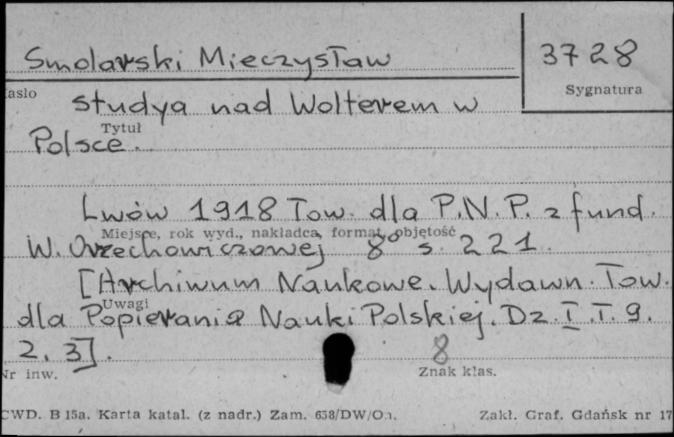 Smolarski Mieczysław
3728
asło
Sygnatura
studya nad Wolterem w
Tytuł
Polsce.
Lwów 1918 Tow. dla P.N.P. z fund.
Miejsce, rok wyd., nakładca, format, objętość
W. Orzechowiczowej 8° s. 221.
[Archiwum Naukowe. Wydawn. Tow.
Uwagi
dla Popierania Nauki Polskiej. Dz. I. T. 9.
2. 3].
8
Nr inw.
Znak klas.
CWD. B 15a. Karta katal. (z nadr.) Zam. 638/DW/O.
Zakł. Graf. Gdańsk nr 17